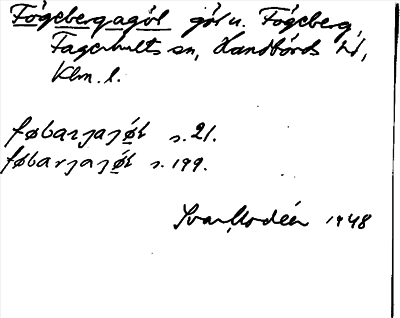 Fögebergagöl göl u. Fögeberg,
Fagerhults sn, Handbörds hd,
Klm. l.
føbarjajøl s. 21.
føbarjajøl s. 199.
Ivar Modéer 1948